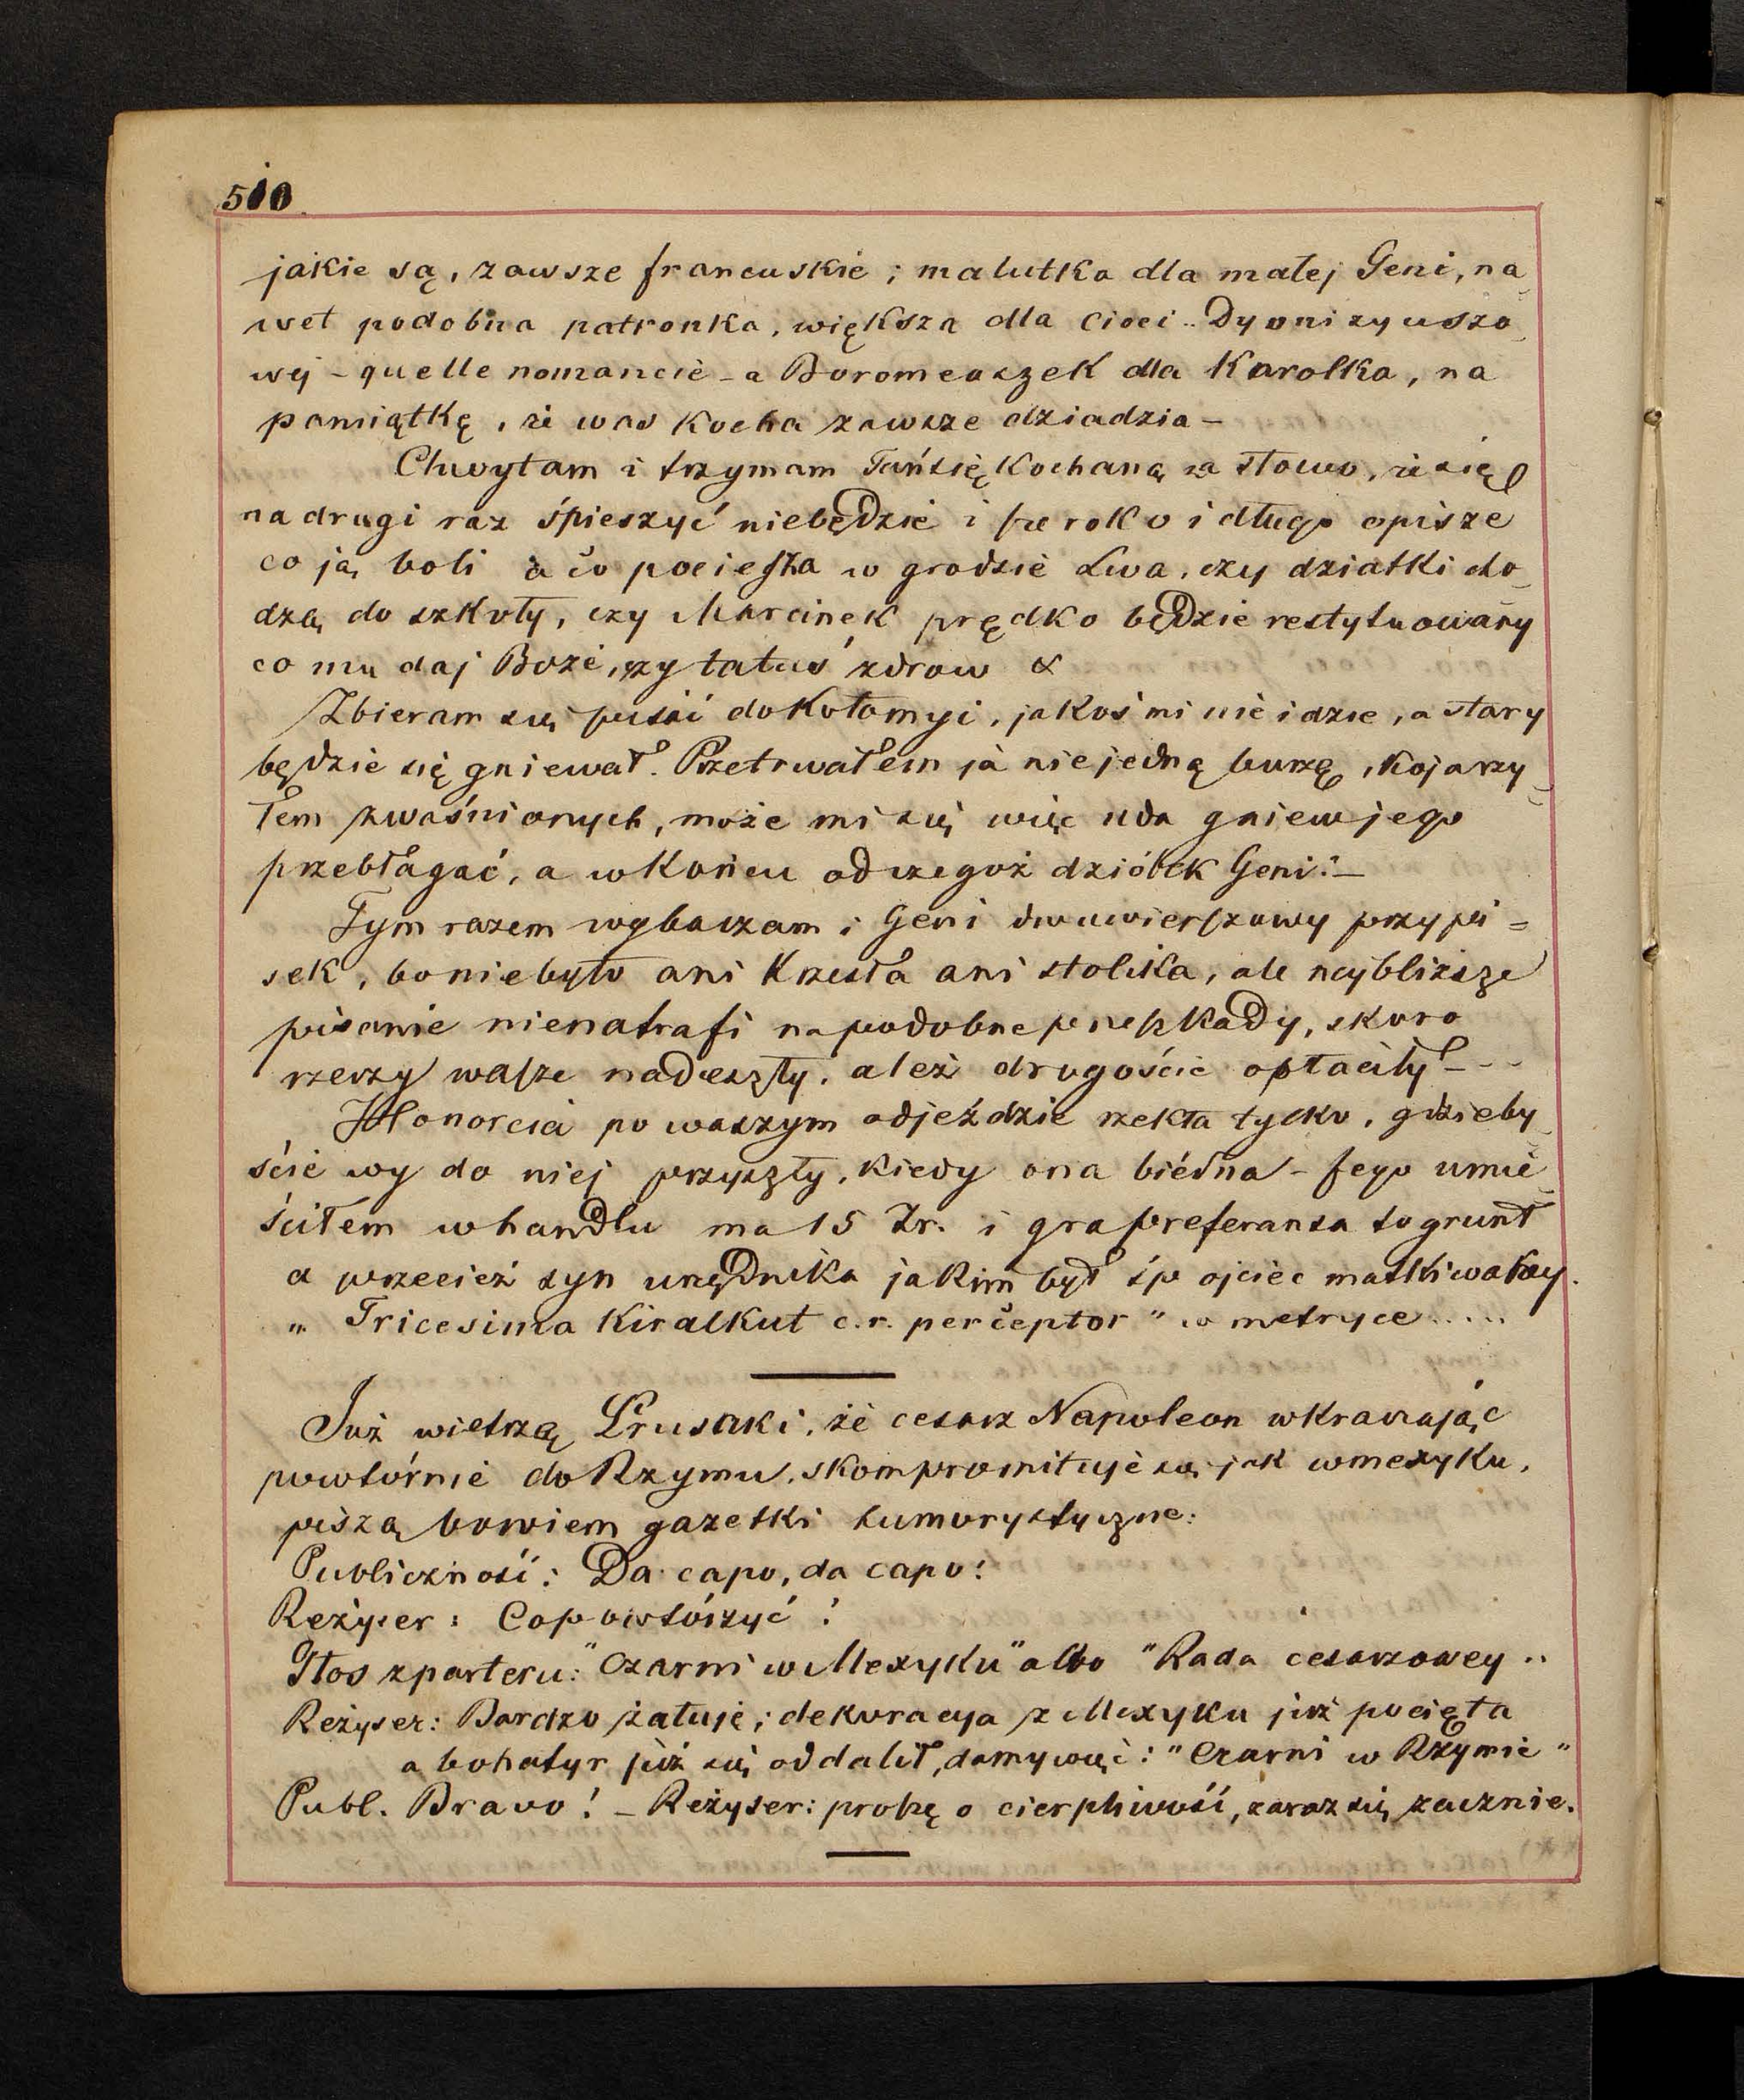 510
jakie są, zawsze francuskie; malutka dla małej Geni, na_
wet podobna patronka, większa dla cioci Dyonizyuszo_
wej – quelle nomancie – a Boromeuszek dla Karolka, na
pamiątkę, że was kocha zawsze dziadzia –
Chwytam i trzymam Tańsię kochaną za słowo, że się
na drugi raz śpieszyć niebędzie i szeroko i długo opisze
co ją boli a co pociesza w grodzie Lwa, czy dziatki cho_
dzą do szkoły, czy Marcinek prędko będzie restytuowany
co mu daj Boże, czy tatuś zdrow &
Zbieram się puścić do Kołomyi, jakoś mi nie idzie, a stary
będzie się gniewał. Przetrwałem ja niejedną burzę, kojarzy_
łem zwaśnionych, może mi się więc uda gniew jego
przebłagać, a wkońcu od czegoż dzióbek Geni? –
Tym razem wybaczam i Geni dwuwierszowy przypi=
sek, bo niebyło ani krzesła ani stolika, ale najbliższe
pisanie nienatrafi na podobne przeszkady, skoro
rzeczy wasze nadeszły, aleź drogoście opłaciły – - -
Honorcia po waszym odjeździe rzekła tylko, gdzieby_
ście wy do niej przyszły, kiedy ona biédna – jego umie_
ściłem w handlu ma 15 Zr. i gra preferansa to grunt
a przecież syn urzędnika jakim był śp ojciec matki waszej.
„Tricesima Kiralkut c.r. perceptor" w metryce.....
Już wietrzą Prusaki, że cesarz Napoleon wkraczając
powtórnie do Rzymu, skompromituje się jak wmexyku,
piszą bowiem gazetki humorystyczne:
Publiczność: Da capo, da capo!
Reżyser: Co powtórzyć?
Głos z parteru: "Czarni w Mexyku" albo "Rada cesarzowey"
Reżyser: Bardzo żałuję; dekoracya z Mexyku już pocięta
a bohatyr już się oddalił, damy więc: "Czarni w Rzymie"
Publ. Bravo! – Reżyser: proszę o cierpliwość, zaraz się zacznie.